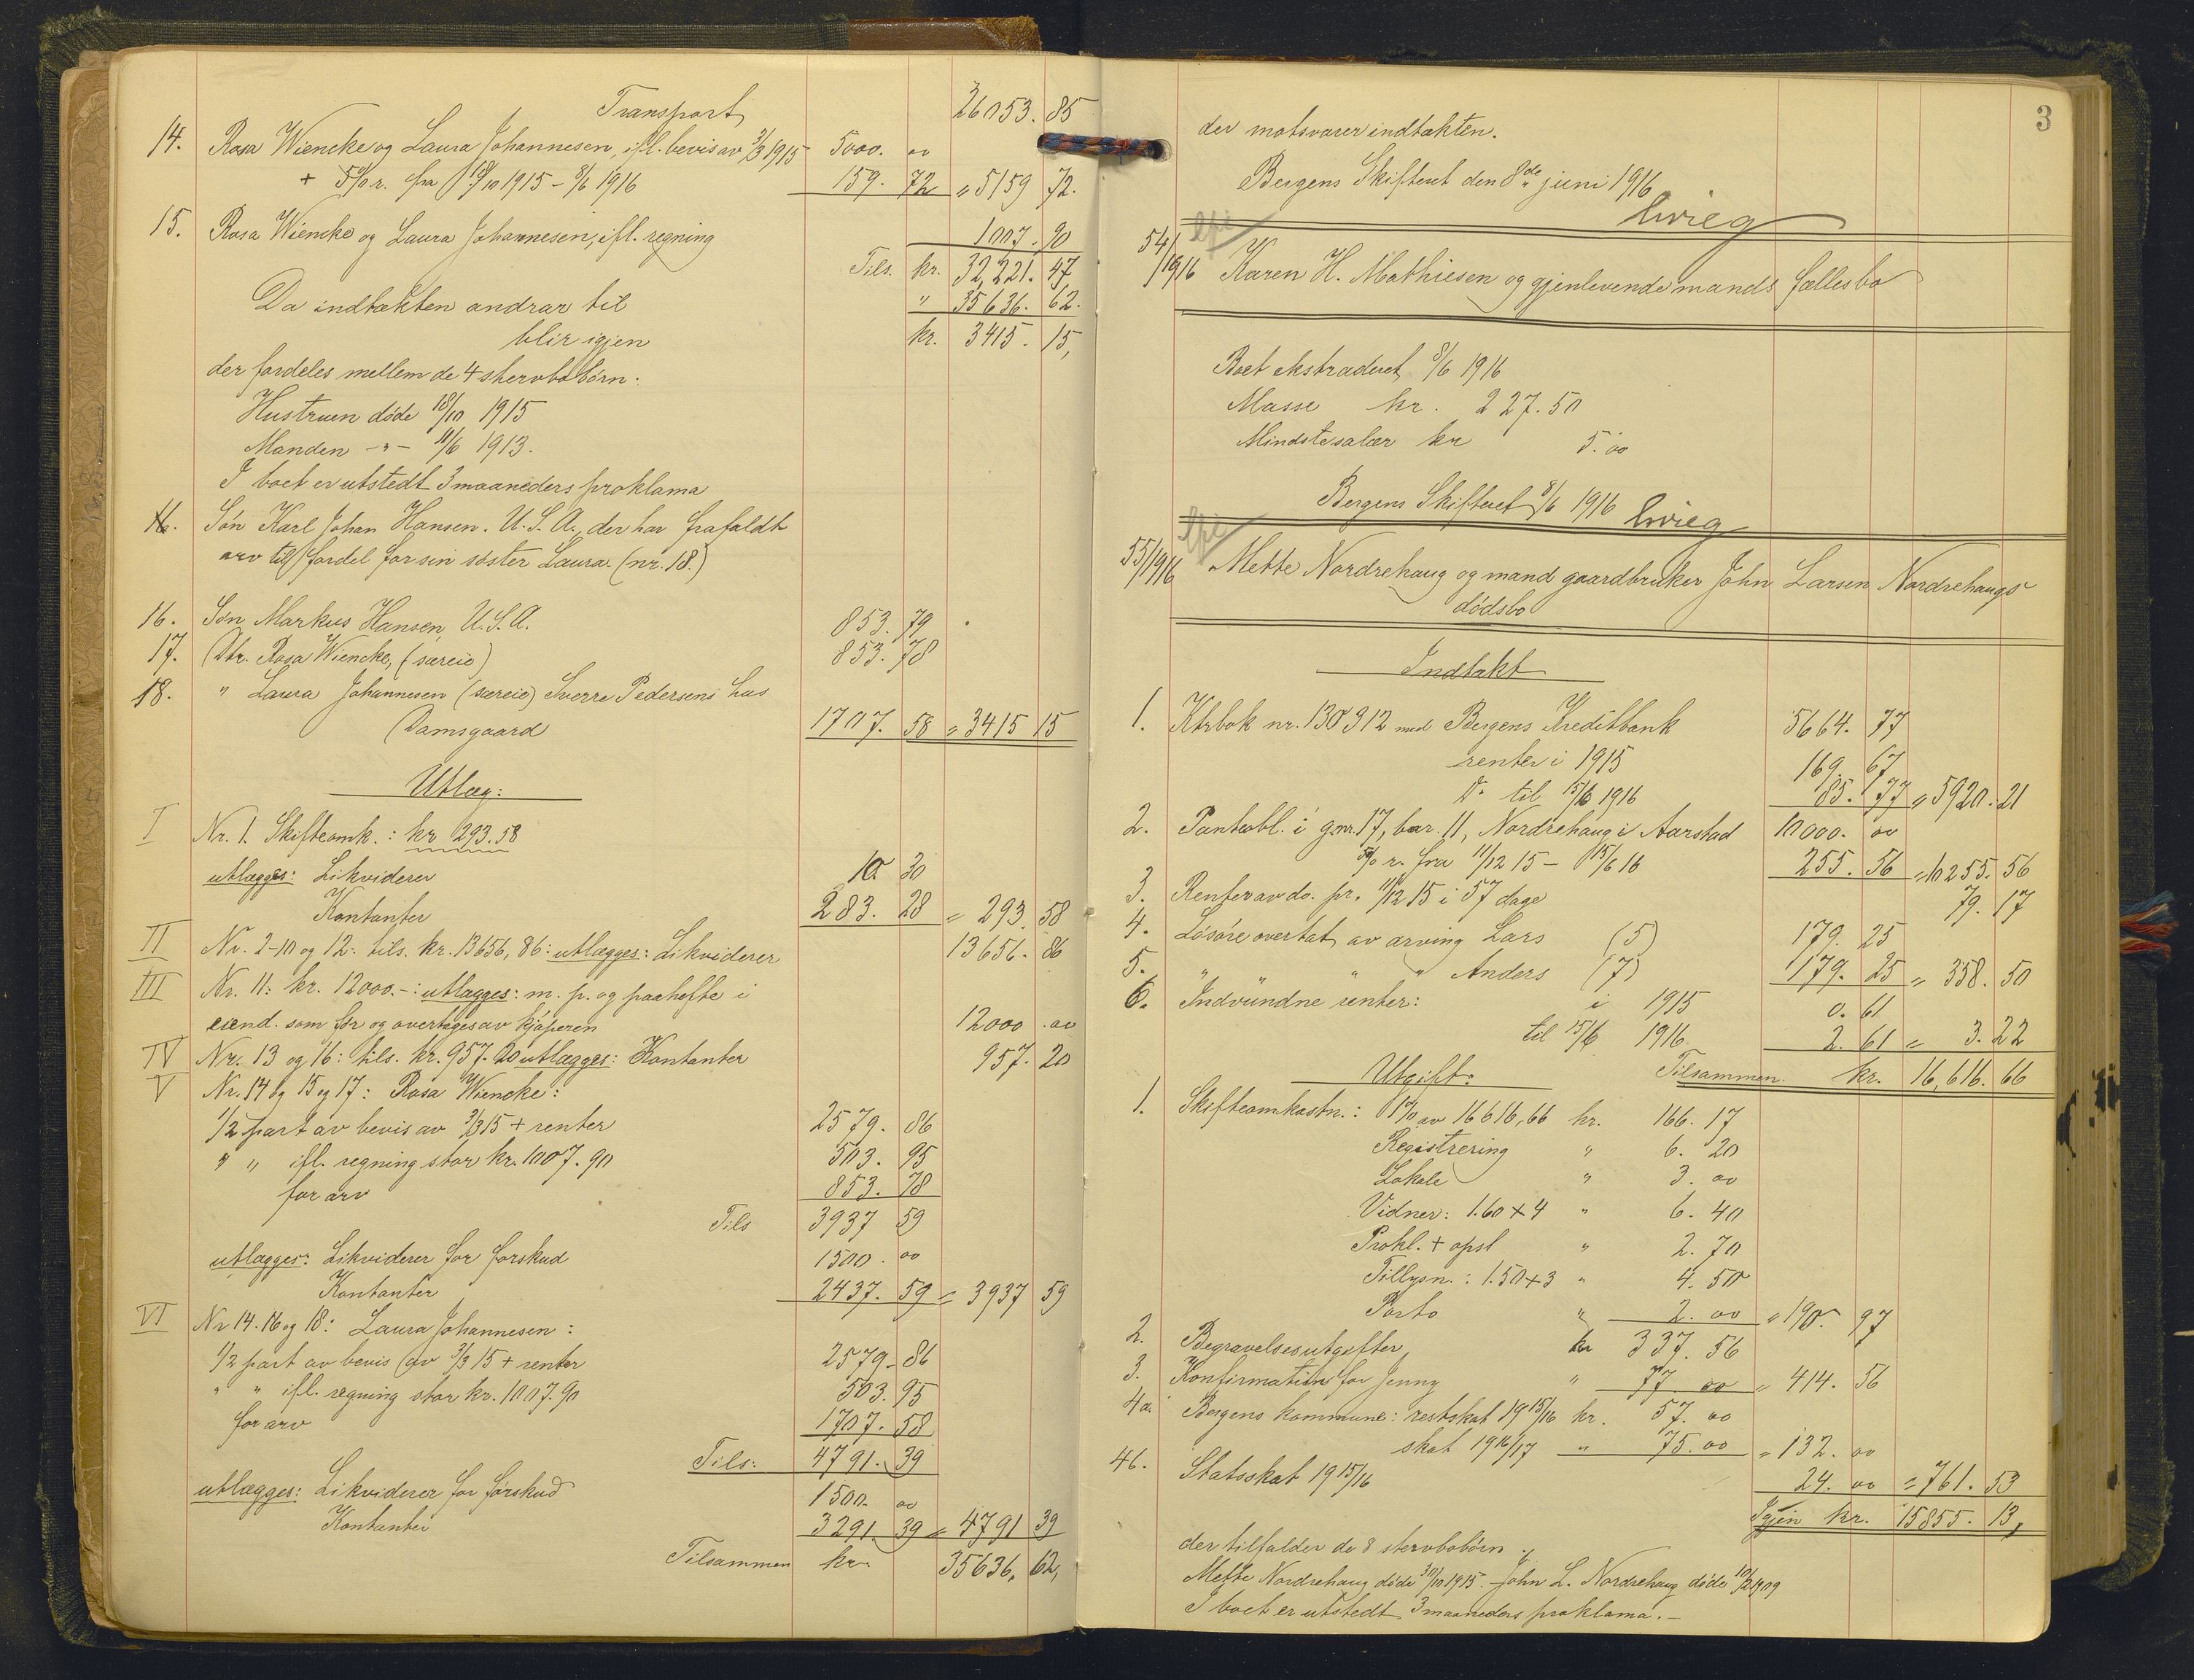 Transport 26053. 85
14. Rosa Wiencke og Laura Johannesen, ifl. bevis av 3/3 1915 5000. 00
+ 5% r. fra 18/10 1915 – 8/6 1916 159. 72 = 5159 72.
15. Rosa Wiencke og Laura Johannesen, ifl. regning 1007. 90
Tils. kr. 32,221. 47
Da indtækten andrar til " 35636. 62.
blir igjen kr. 3415. 15,
der fordeles mellem de 4 stervbobörn.
Hustruen döde 18/10 1915
Manden -"- 11/6 1913.
I boet er utstedt 3 maaneders proklama
16. Sön Karl Johan Hansen. U.S.A., der har frafaldt
arv til fordel for sin söster Laura. (nr. 18.)
16. Sön Markus Hansen, U.S.A. 853. 79
17. Dtr. Rosa Wiencke, (særeie) 853. 78
18. " Laura Johannesen (særeie) Sverre Pedersens hus
Damsgaard 1707. 58 = 3415 15
Utlæg:
I Nr. 1. Skifteomk.: kr 293.58
utlægges: Likviderer 10 30
Kontanter 283. 28 = 293. 58
II Nr. 2-10 og 12: tils. kr. 13656, 86: utlægges: Likviderer 13656. 86
III Nr. 11: kr. 12000.-: utlægges: m. p. og paahefte i
eiend. som för og overtages av kjöperen 12000. 00
IV Nr. 13 og 16: tils. kr. 957. 20 utlægges: Kontanter 957. 20
V Nr. 14 og 15 og 17: Rosa Wiencke:
1/2 part av bevis av 3/3 15 + renter 2579. 86
" " ifl. regning stor kr. 1007. 90 503. 95
for arv 853. 78
Tils 3937 59
utlægges: Likviderer for forskud 1500. 00
Kontanter 2437. 59 = 3937 59
VI Nr 14. 15 og 18: Laura Johannesen:
1/2 part av bevis av 3/3 15 + renter 2579. 86
" " ifl. regning stor kr. 1007. 90 503. 95
for arv 1707. 58
Tils: 4791. 39
utlægges: Likviderer for forskud 1500. 00
Kontanter 3291. 39 = 4791 39
Tilsammen kr. 35636, 62,
3
der motsvarer indtækten.
Bergens Skifteret den 8de juni 1916
Grieg
54/1916 Karen H. Mathiesen og gjenlevende mands fællesbo
Boet ekstraderet 8/6 1916
Masse kr. 227. 50
Mindstesalær kr 5. 00
Bergens Skifteret 8/6 1916 Grieg
55/1916 Mette Nordrehaug og mand gaardbruker John Larsen Nordrehaugs
dödsbo
Indtækt
1. Ktrbok nr. 130312 med Bergens Kreditbank 5664. 77
renter i 1915 169. 67
Do til 15/6 1916 85. 77 = 5920. 21
2. Panteobl. i gnr. 17, bnr. 11, Nordrehaug i Aarstad 10000. 00
5% r. fra 11/12 15 – 15/6 16 255. 56 = 10255. 56
3. Renter av do. pr. 11/12 15 i 57 dage 79. 17
4. Lösöre overtat av arving Lars (5) 179. 25
5. " " " " Anders (7) 179. 25 = 358. 50
6. Indvundne renter: i 1915 0. 61
til 15/6 1916 2. 61 = 3. 22
Tilsammen kr. 16,616. 66
Utgift:
1. Skifteomkostn.: 1% av 16616,66 kr. 166. 17
Registrering " 6. 20
Lokale " 3. 00
Vidner: 1.60 x 4 " 6. 40
Prokl. + opsl " 2. 70
Tillysn.: 1.50 x 3 " 4. 50
Porto " 2. 00 = 190. 97
2. Begravelsesutgifter, kr 337. 56
3. Konfirmation for Jenny " 77. 00 = 414. 56
4a. Bergens kommune: restskat 1915/16 kr. 57. 00
skat 1916/17 " 75. 00 = 132. 00
4b. Statsskat 1915/16 24. 00 = 761. 53
Igjen kr. 15855. 13,
der tilfalder de 8 stervbobörn.
Mette Nordrehaug döde 30/10 1915. John L. Nordrehaug döde 10/2 1909
I boet er utstedt 3 maaneders proklama.-